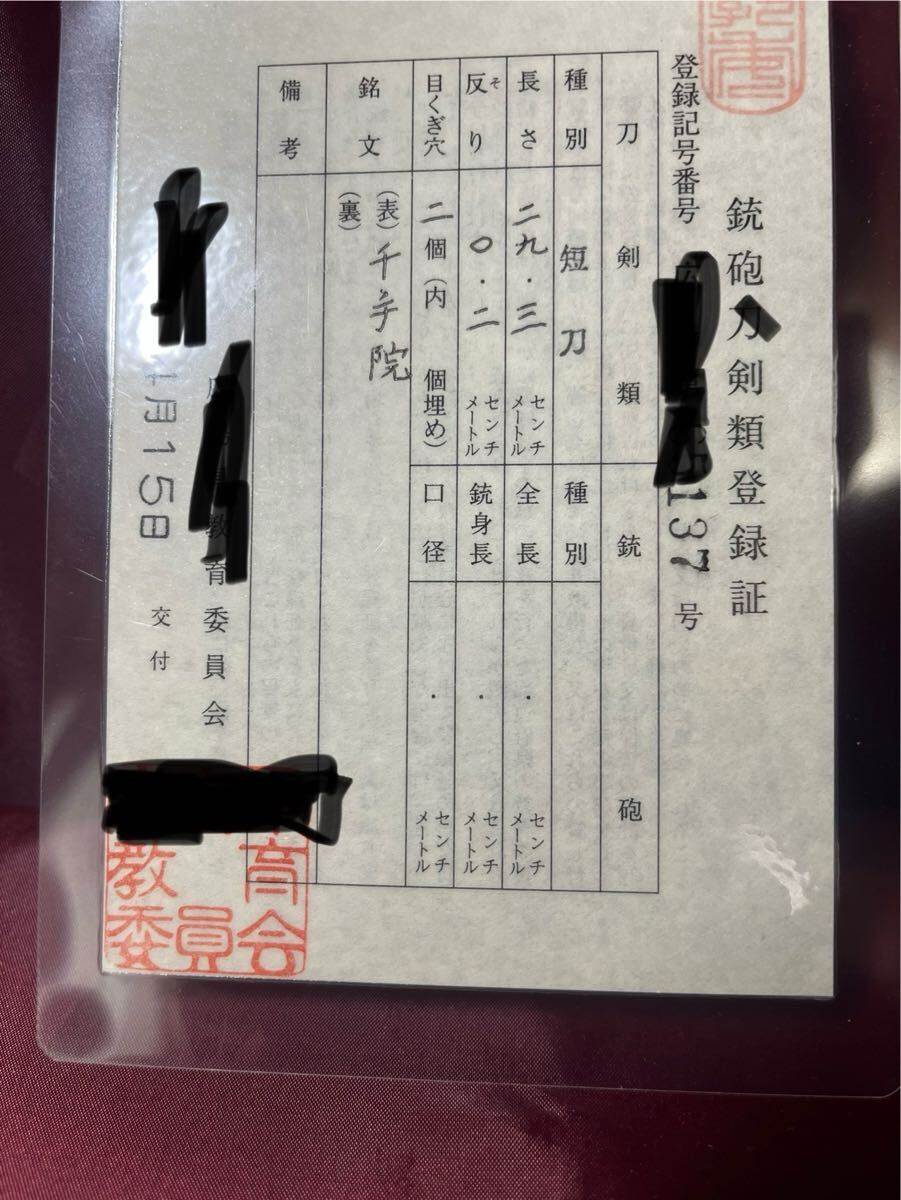 銃砲刀剣類登録証
登録記号番号
137号
刀剣類
銃砲
種別
短刀
種別
長さ
二九.三
センチ
メートル
全長
.
センチ
メートル
反り
そ
〇.二
センチ
メートル
銃身長
.
センチ
メートル
目くぎ穴
二個(内 個埋め)
口径
.
センチ
メートル
銘文
(表)千手院
(裏)
備考
教育委員会
月15日
交付
教育
委員会